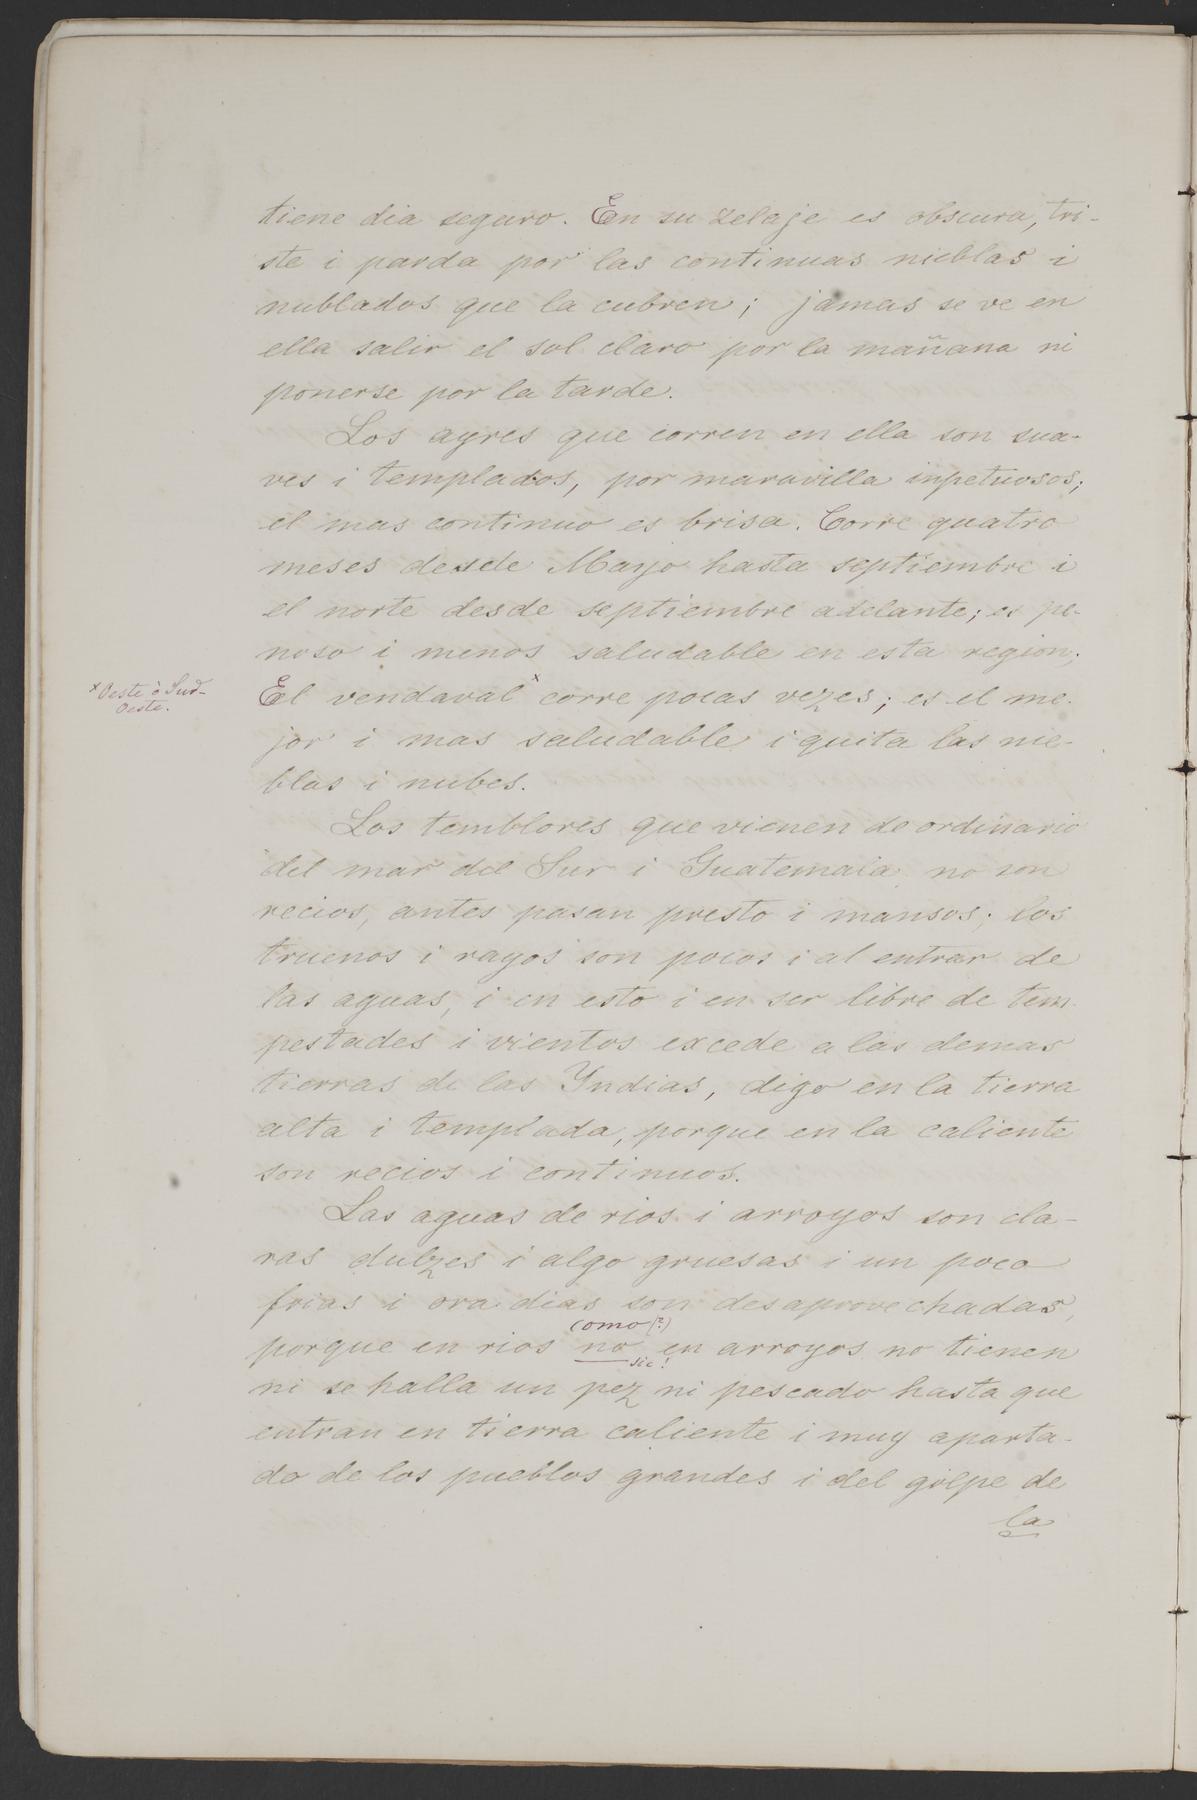 tiene dia seguro. En su zelaje es obscura, tri-
ste i parda por las continuas nieblas i
nublados que la cubren; jamas se ve en
ella salir el sol claro por la mañana ni
ponerse por la tarde.
Los ayres que corren en ella son sua-
ves i templados, por maravilla inpetuosos;
el mas continuo es brisa. Corre quatro
meses desde Mayo hasta septiembre i
el norte desde septiembre adelante; es pe-
noso i menos saludable en esta region;
x Oeste ò Sud-
Oeste.
El vendaval x corre pocas vezes; es el me-
jor i mas saludable i quita las nie-
blas i nubes.
Los temblores que vienen de ordinario
del mar del Sur i Guatemala no son
recios, antes pasan presto i mansos; los
truenos i rayos son pocos i al entrar de
las aguas, i en esto i en ser libre de tem-
pestades i vientos excede a las demas
tierras de las Yndias, digo en la tierra
alta i templada, porque en la caliente
son recios i continuos.
Las aguas de rios i arroyos son cla-
ras dulzes i algo gruesas i un poco
frias i ora dias son desaprovechadas,
como (?)
porque en rios no en arroyos no tienen
sic!
ni se halla un pez ni pescado hasta que
entran en tierra caliente i muy aparta-
do de los pueblos grandes i del golpe de
la